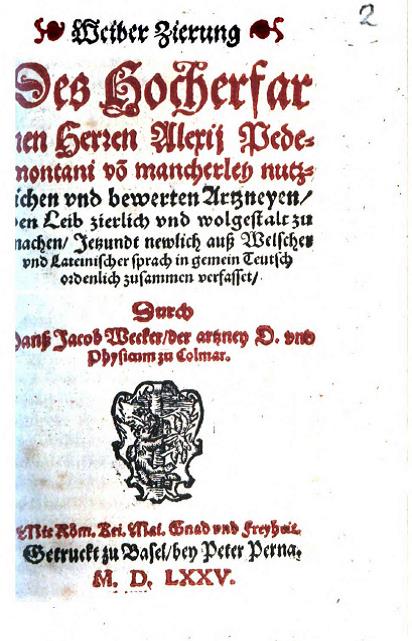 2
Weiber Zierung
Des Hocherfar
nen Herren Alexij Pede⸗
montani võ mancherley nutz⸗
lichen vnd bewerten Artzneyen/
den Leib zierlich vnd wolgestalt zu
machen/ Jetzundt newlich auß Welscher
vnd Lateinischer sprach in gemein Teutsch
ordenlich zusammen verfasset/
Durch
Hanß Jacob Wecker/der artzney D. vnd
Physicum zu Colmar.
Mit Röm. Kei. Mai. Gnad vnd Freyheit.
Getruckt zu Basel/bey Peter Perna.
M. D. LXXV.